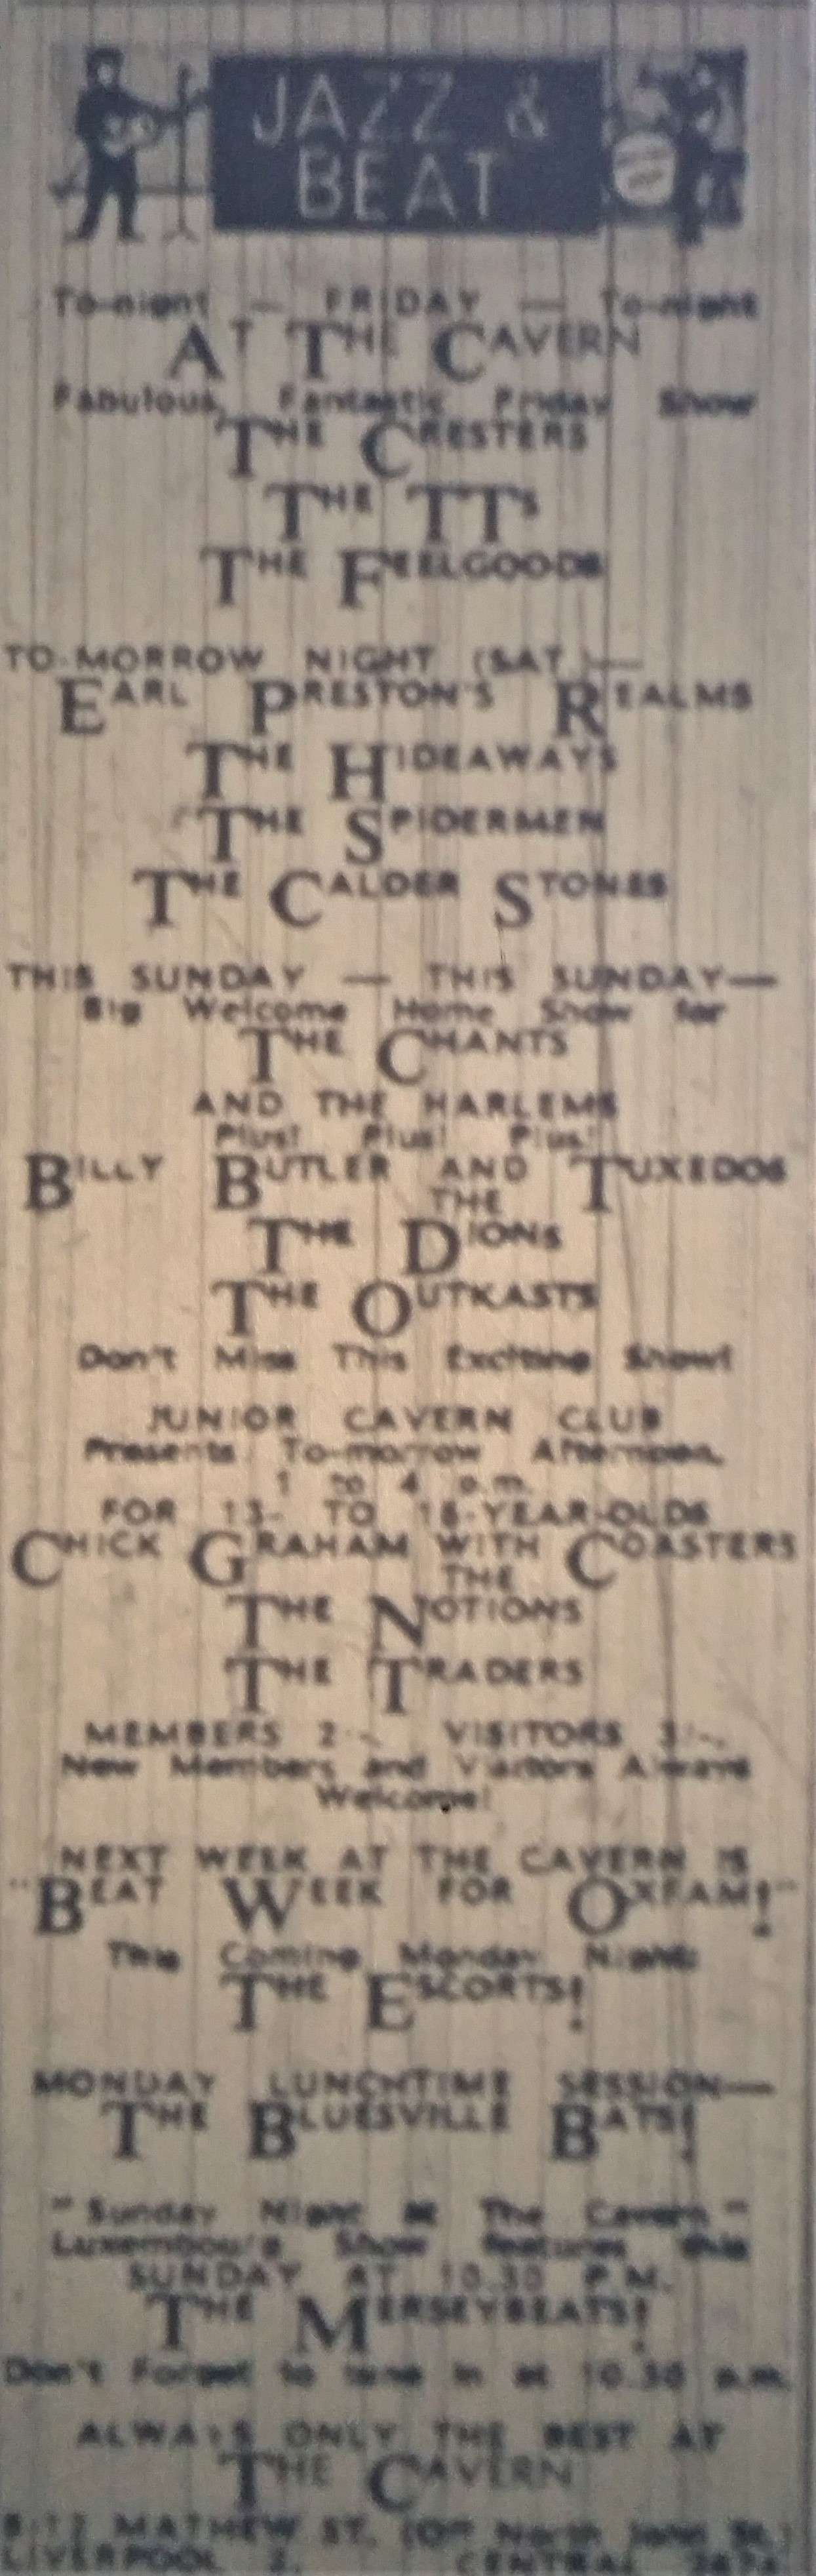 JAZZ &
BEAT
To-night — FRIDAY — To-night
AT THE CAVERN
Fabulous, Fantastic Friday Show
THE CRESTERS
THE TTs
THE FEELGOODS
TO-MORROW NIGHT (SAT.)—
EARL PRESTON'S REALMS
THE HIDEAWAYS
THE SPIDERMEN
THE CALDER STONES
THIS SUNDAY — THIS SUNDAY—
Big Welcome Home Show for
THE CHANTS
AND THE HARLEMS
Plus! Plus! Plus!
BILLY BUTLER AND THE TUXEDOS
THE DIONS
THE OUTKASTS
Don't Miss This Exciting Show!
JUNIOR CAVERN CLUB
Presents To-morrow Afternoon,
1 to 4 p.m.
FOR 13- TO 16-YEAR-OLDS
CHICK GRAHAM WITH THE COASTERS
THE NOTIONS
THE TRADERS
MEMBERS 2/-. VISITORS 3/-.
New Members and Visitors Always
Welcome!
NEXT WEEK AT THE CAVERN IS
"BEAT WEEK FOR OXFAM!"
This Coming Monday Night:
THE ESCORTS!
MONDAY LUNCHTIME SESSION—
THE BLUESVILLE BATS!
"Sunday Night at The Cavern"
Luxembourg Show features this
SUNDAY AT 10.30 P.M.
THE MERSEYBEATS!
Don't Forget to tune in at 10.30 p.m.
ALWAYS ONLY THE BEST AT
THE CAVERN
MATHEW ST. (Off North John St.)
LIVERPOOL 2. CENTRAL